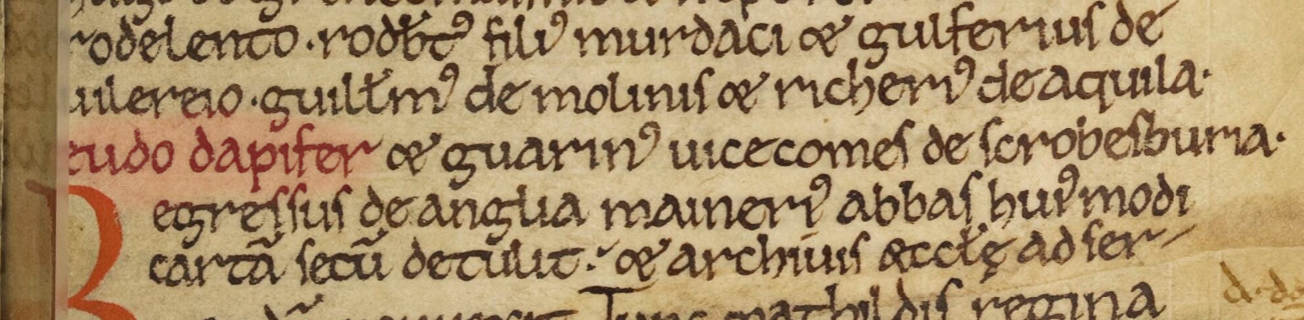 rodelento · rodbt᷒ filiꝰ murdaci & gulferius de
uilereio · guillmꝰ de molinis & richerꝰ de aquila ·
eudo dapifer & guarinꝰ uicecomes de scrobesburia ·
Regressus de anglia mainerꝰ abbas huiꝰmodi
cartã secũ detulit · & archiuis æcclę ad ser-
Tunc mathildis regina